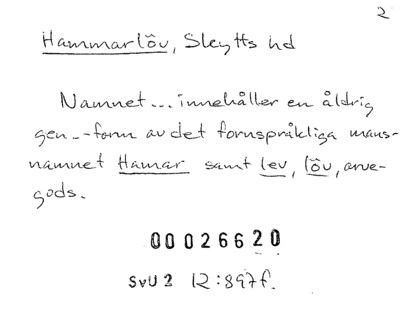 2
Hammarlöv, Skytts hd
Namnet... innehåller en åldrig
gen--form av det fornspråkliga mans-
namnet Hamar samt lev, löv, arve-
gods.
00026620
SvU 2 12:897f.